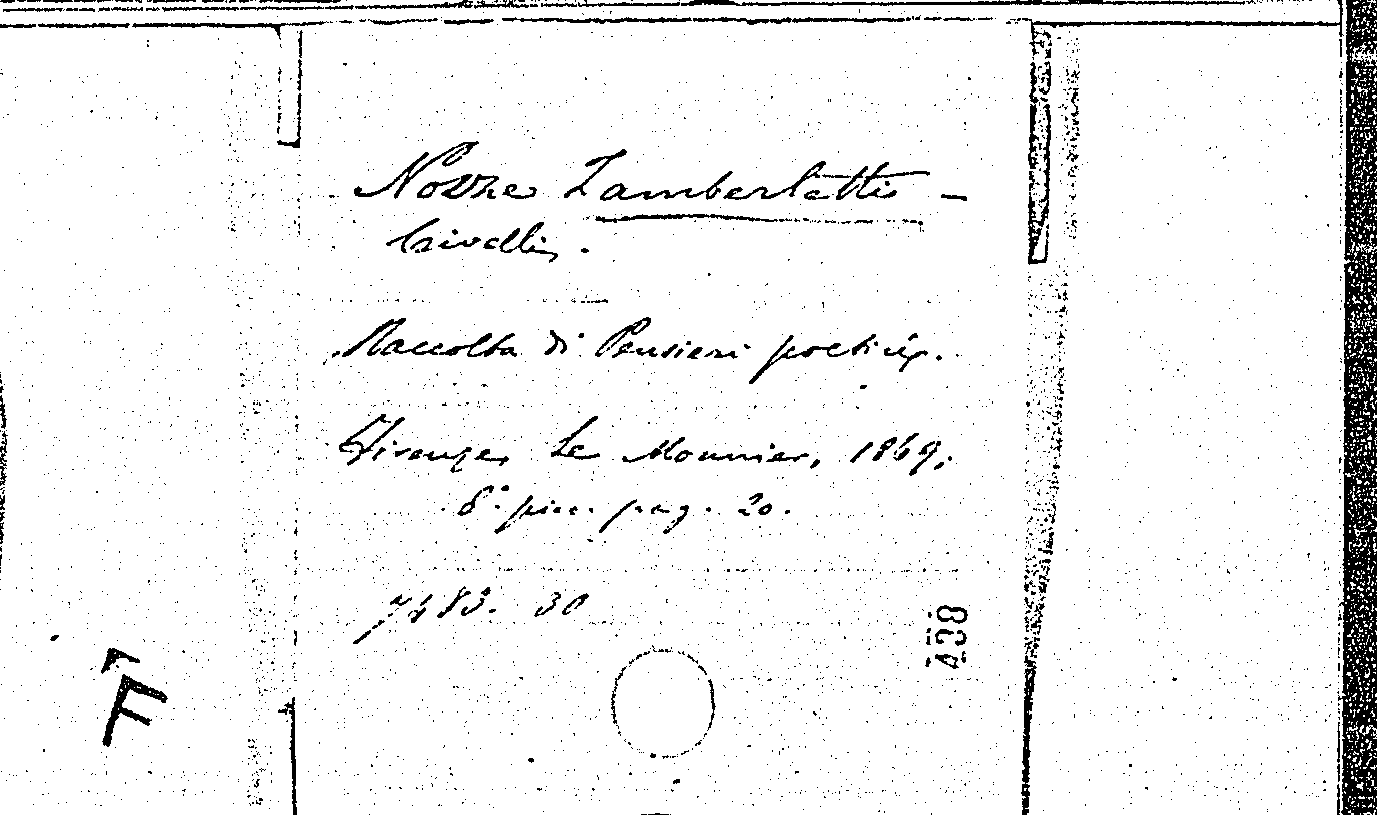 Nozze Zamberletti -
Crivelli.
Raccolta di Pensieri poetici.
Firenze, Le Monnier, 1869;
8.° picc. pag. 20.
7483. 30
438
F